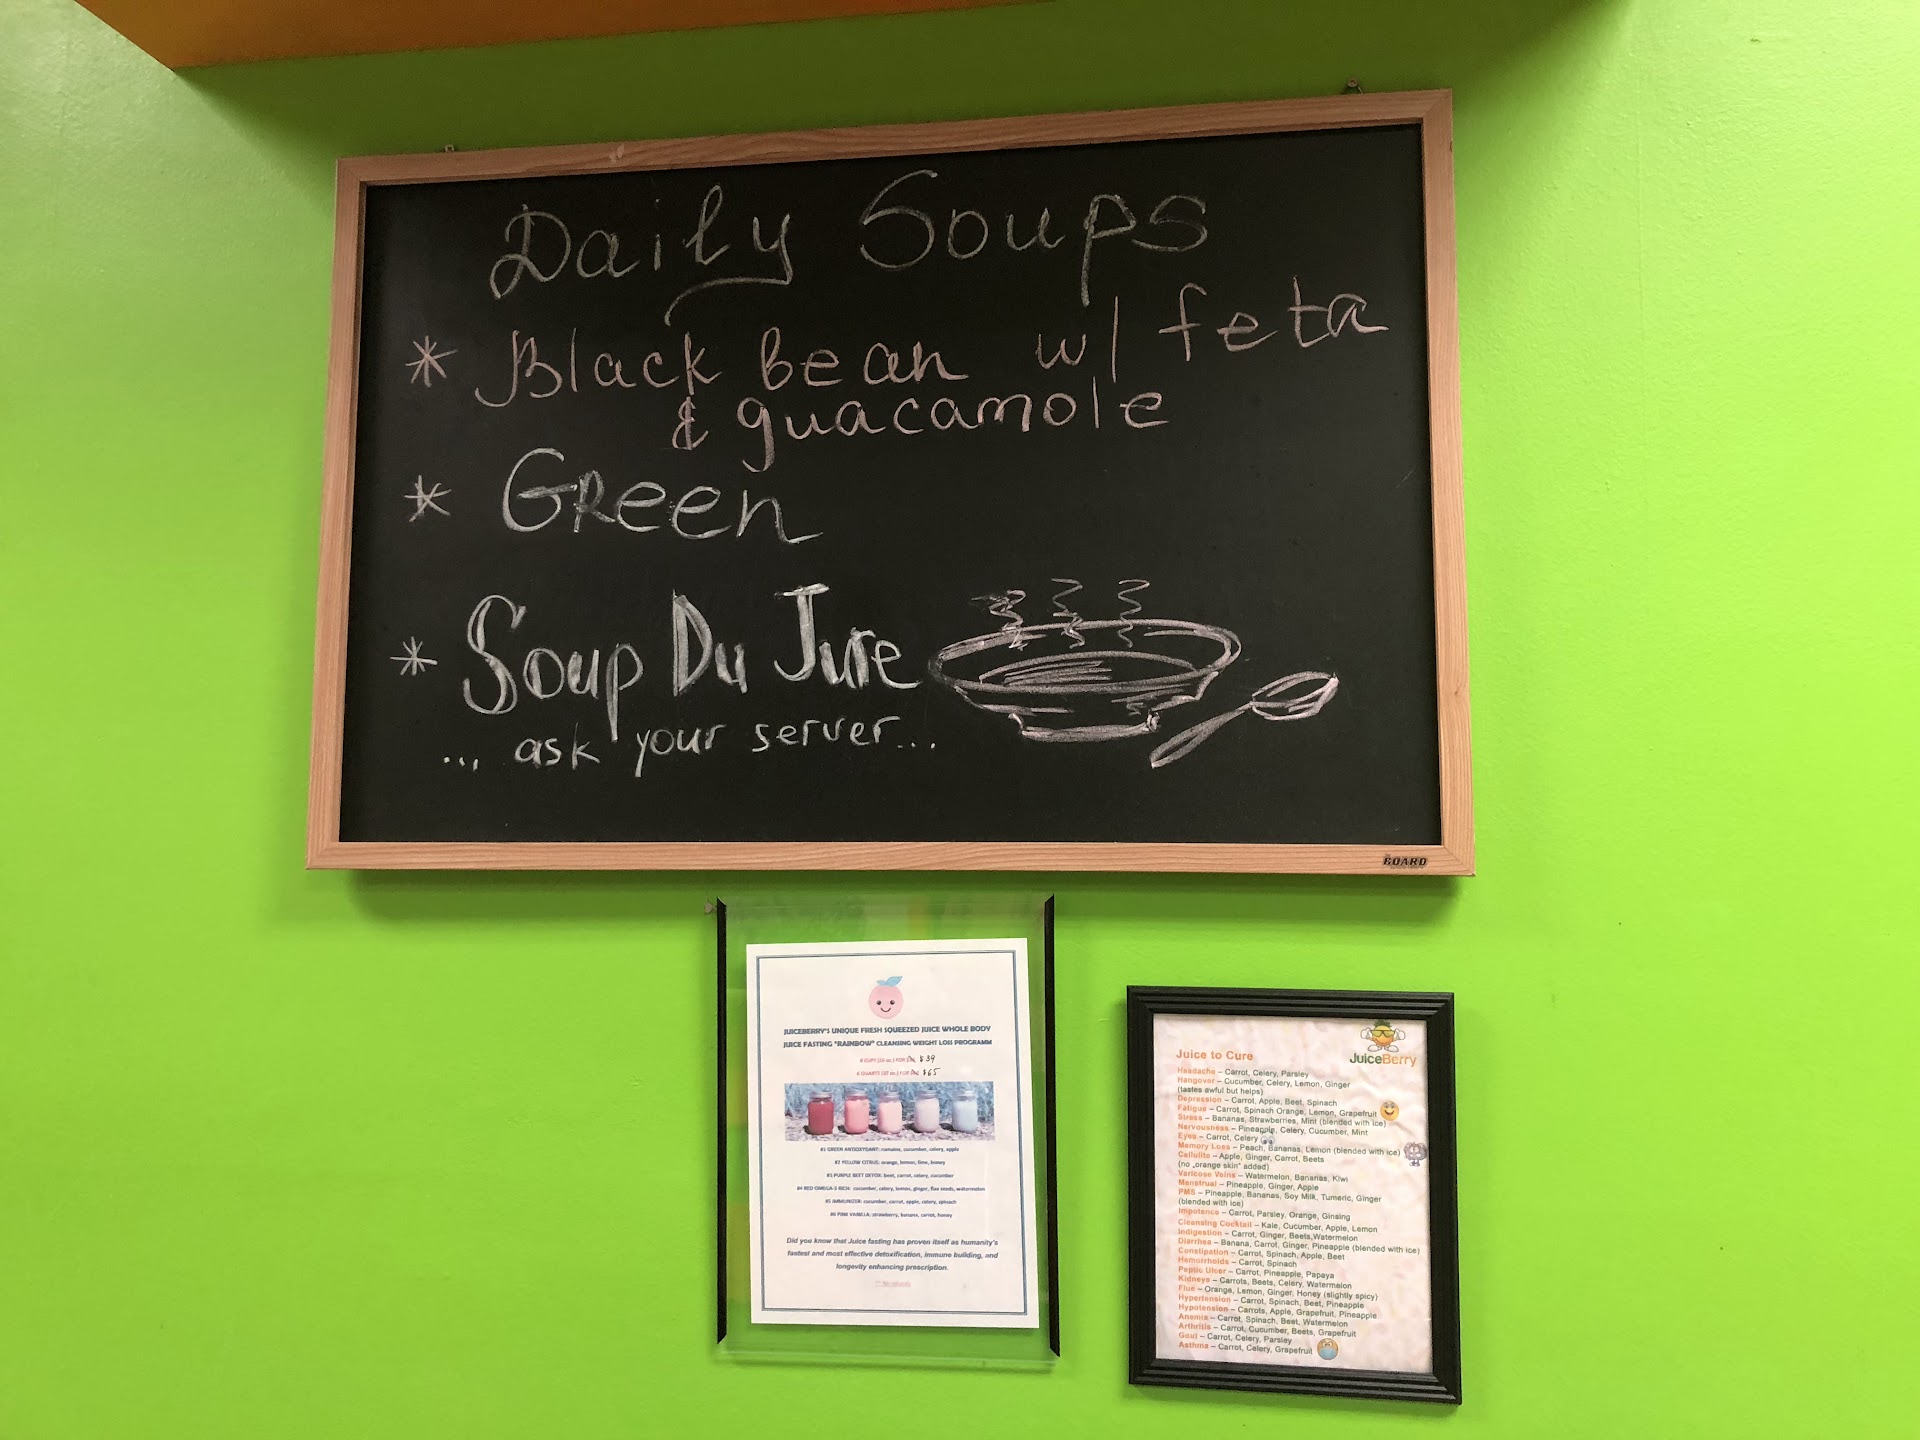 Daily Soups
* Black bean w/ feta
& guacamole
* Green
* Soup Du Jure
... ask your server...
BOARD
JUICEBERRY'S UNIQUE FRESH SQUEEZED JUICE WHOLE BODY
JUICE FASTING "RAINBOW" CLEANSING WEIGHT LOSS PROGRAMM
6 CUPS (16 oz.) FOR $39
6 QUARTS (32 oz.) FOR $65
#1 GREEN ANTIOXYDANT: romaine, cucumber, celery, apple
#2 YELLOW CITRUS: orange, lemon, lime, honey
#3 PURPLE BEET DETOX: beet, carrot, celery, cucumber
#4 RED OMEGA-3 RICH: cucumber, celery, lemon, ginger, flax seeds, watermelon
#5 IMMUNIZER: cucumber, carrot, apple, celery, spinach
#6 PINK VANILLA: strawberry, banana, carrot, honey
Did you know that Juice fasting has proven itself as humanity's
fastest and most effective detoxification, immune building, and
longevity enhancing prescription.
JuiceBerry
Juice to Cure
Headache – Carrot, Celery, Parsley
Hangover – Cucumber, Celery, Lemon, Ginger
(tastes awful but helps)
Depression – Carrot, Apple, Beet, Spinach
Fatigue – Carrot, Spinach Orange, Lemon, Grapefruit
Stress – Bananas, Strawberries, Mint (blended with ice)
Nervousness – Pineapple, Celery, Cucumber, Mint
Eyes – Carrot, Celery
Memory Loss – Peach, Bananas, Lemon (blended with ice)
Cellulite – Apple, Ginger, Carrot, Beets
(no „orange skin" added)
Varicose Veins – Watermelon, Bananas, Kiwi
Menstrual – Pineapple, Ginger, Apple
PMS – Pineapple, Bananas, Soy Milk, Tumeric, Ginger
(blended with ice)
Impotence – Carrot, Parsley, Orange, Ginsing
Cleansing Cocktail – Kale, Cucumber, Apple, Lemon
Indigestion – Carrot, Ginger, Beets,Watermelon
Diarrhea – Banana, Carrot, Ginger, Pineapple (blended with ice)
Constipation – Carrot, Spinach, Apple, Beet
Hemorrhoids – Carrot, Spinach
Peptic Ulcer – Carrot, Pineapple, Papaya
Kidneys – Carrots, Beets, Celery, Watermelon
Flue – Orange, Lemon, Ginger, Honey (slightly spicy)
Hypertension – Carrot, Spinach, Beet, Pineapple
Hypotension – Carrots, Apple, Grapefruit, Pineapple
Anemia – Carrot, Spinach, Beet, Watermelon
Arthritis – Carrot, Cucumber, Beets, Grapefruit
Gout – Carrot, Celery, Parsley
Asthma – Carrot, Celery, Grapefruit